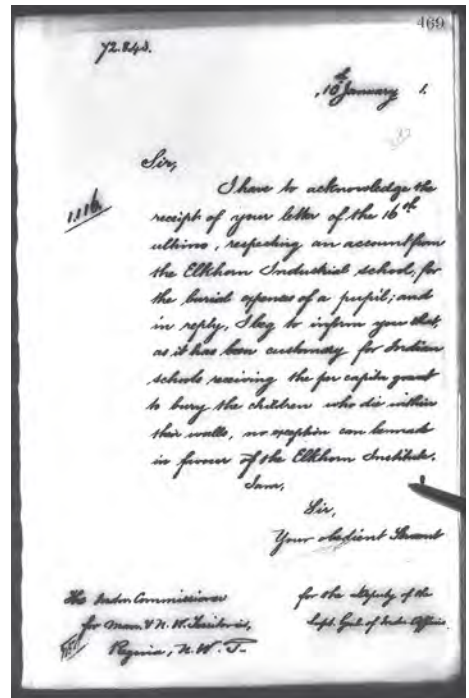 469
72.840.
10th January 1.
Sir,
1116
I have to acknowledge the
receipt of your letter of the 16th
ultimo, respecting an account from
the Elkhorn Industrial school, for
the burial expenses of a pupil; and
in reply, I beg to inform you that,
as it has been customary for Indian
schools receiving the per capita grant
to bury the children who die within
their walls, no exception can be made
in favour of the Elkhorn Institute.
I am,
Sir,
Your obedient Servant
for the Deputy of the
Supt. Genl. of Indn Affairs.
The Indn Commissioner
for Man. & N. W. Territories,
Regina, N. W. T.